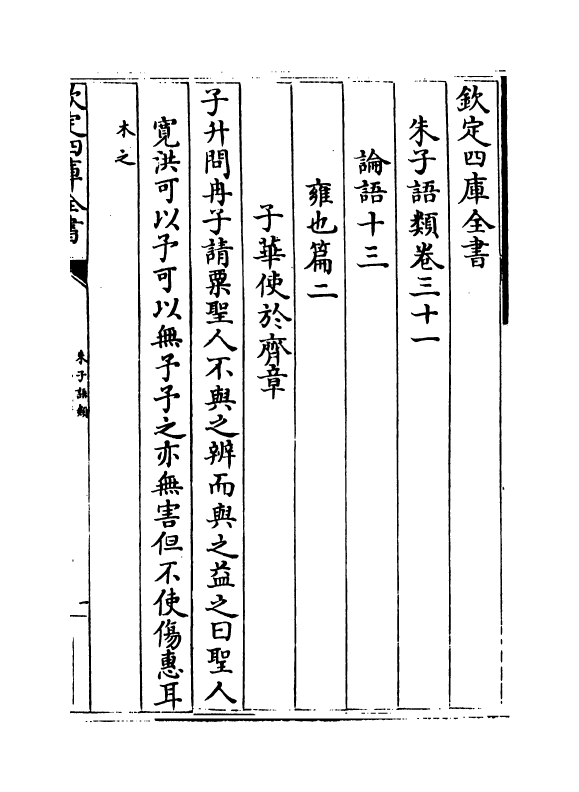 欽定四庫全書
朱子語類卷三十一
論語十三
雍也篇二
子華使於齊章
子升問冉子請粟聖人不與之辨而與之益之曰聖人
寛洪可以予可以無予予之亦無害但不使傷惠耳
木之
欽定四庫全書
朱子語類
一